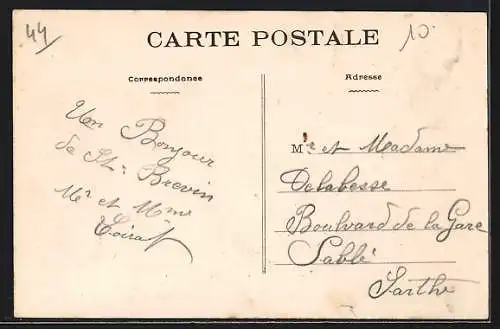 44
10
CARTE POSTALE
Correspondance
Adresse
Un Bonjour
de St. Brevin
Mr et Mme
Mr et Meadame
Delabesse
Boulvard de la Gare
Sablé
Sarthe